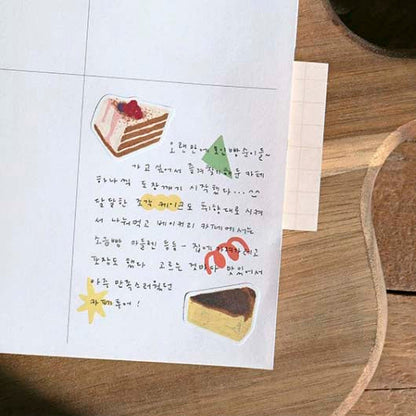 오랜만에 모인 빵순이들~
가고 싶어서 즐겨찾기해둔 카페
하나씩 도장깨기 시작했다...^^
달달한 조각 케이크도 취향대로 시켜
서 나눠먹고 베이커리 카페에서는
소금빵 마들렌 등등 - 집에 가져가려고
포장도 했다 고르는 것마다 맛있어서
아주 만족스러웠던
카페투어!